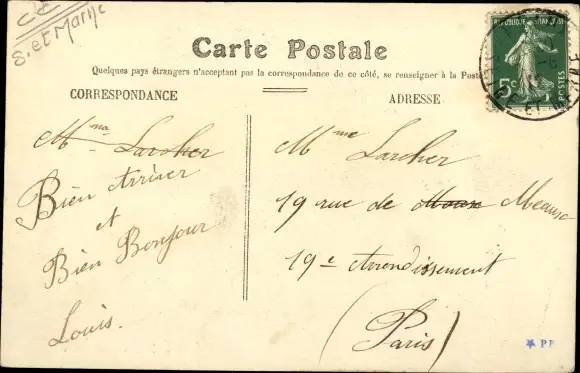 CC
S. et Marne
Carte Postale
Quelques pays étrangers n'acceptant pas la correspondance de ce côté, se renseigner à la Poste
CORRESPONDANCE
ADRESSE
RÉPUBLIQUE FRANÇAISE
5c
POSTES
ET
Mme Larcher
Bien Arriver
et
Bien Bonjour
Louis.
Mme Larcher
19 rue de Meaux
19e Arrondissement
(Paris)
PF